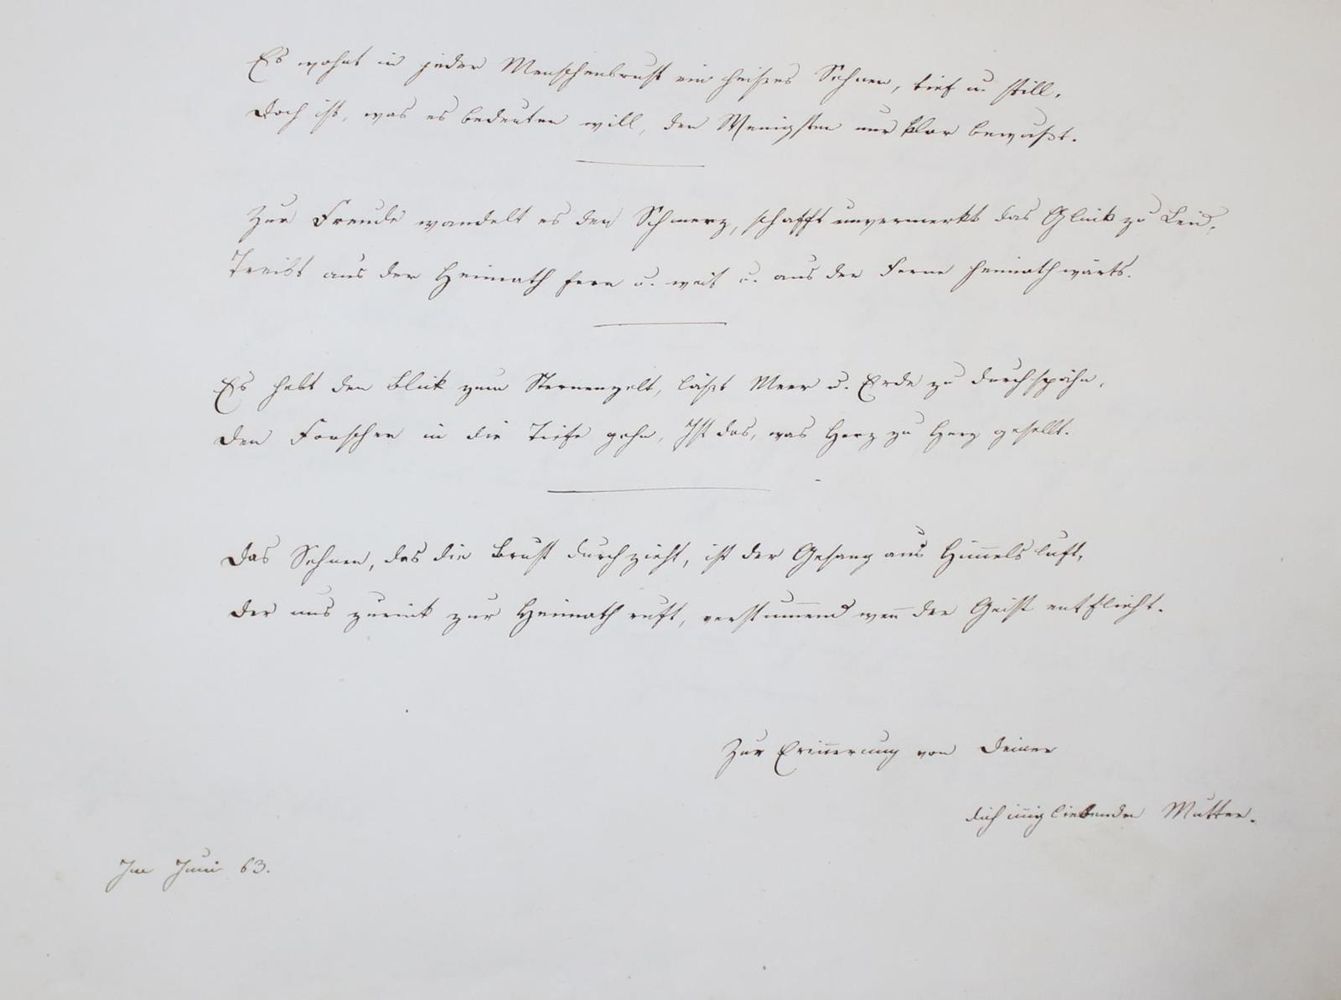 Es wohnt in jeder Menschenbrust ein heißes Sehnen, tief u. still,
Doch ist, was es bedeuten will, den Wenigsten nur klar bewußt.
Zur Freude wandelt es den Schmerz, schafft unvermerkt das Glück zu Leid,
Treibt aus der Heimath fern u. weit u. aus der Ferne heimathwärts.
Es hebt den Blick zum Sternenzelt, läßt Meer u. Erde zu durchspähn,
Den Forscher in die Tiefe gehn, Ist das, was Herz zu Herz gesellt.
Das Sehnen, das die Brust durchzieht, ist der Gesang aus Him̅elsluft,
Der uns zurück zur Heimath ruft, verstum̅end wen̅ der Geist entflieht.
Zur Erin̅erung von Deiner
dich in̅ig liebenden Mutter.
Im Juni 63.